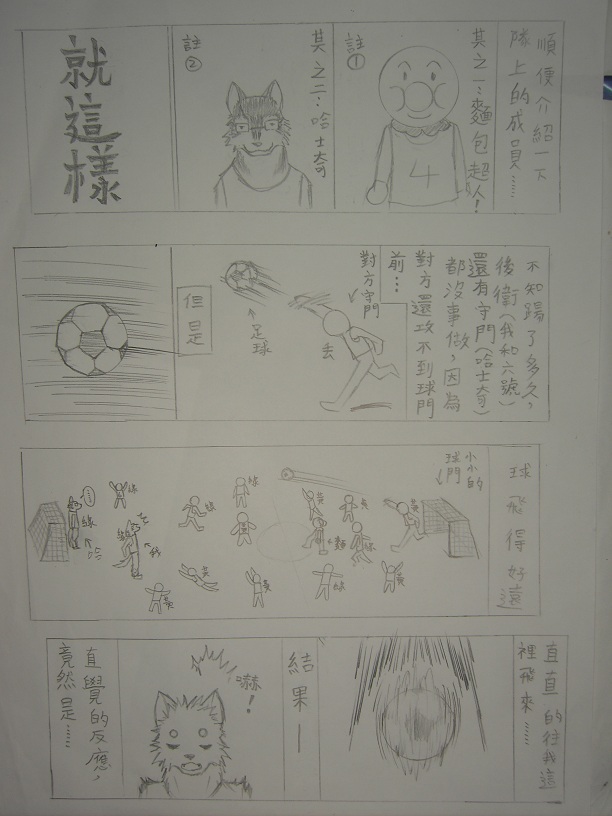 順便介紹一下
隊上的成員……
其之一：麵包超人！
註①
4
其之二：哈士奇
註②
就這樣
不知踢了多久，
後衛(我和六號)
還有守門(哈士奇)
都沒事做，因為
對方還攻不到球門
前…
對方守門
丟
足球
但是
球飛得好遠
小小的
球門
黃
綠
黃
黃
綠
麵
綠
綠
黃
黃
綠
綠
黃
綠
我
黃
綠
哈
……
直直的往我這
裡飛來……
結果—
嚇！
直覺的反應，
竟然是……